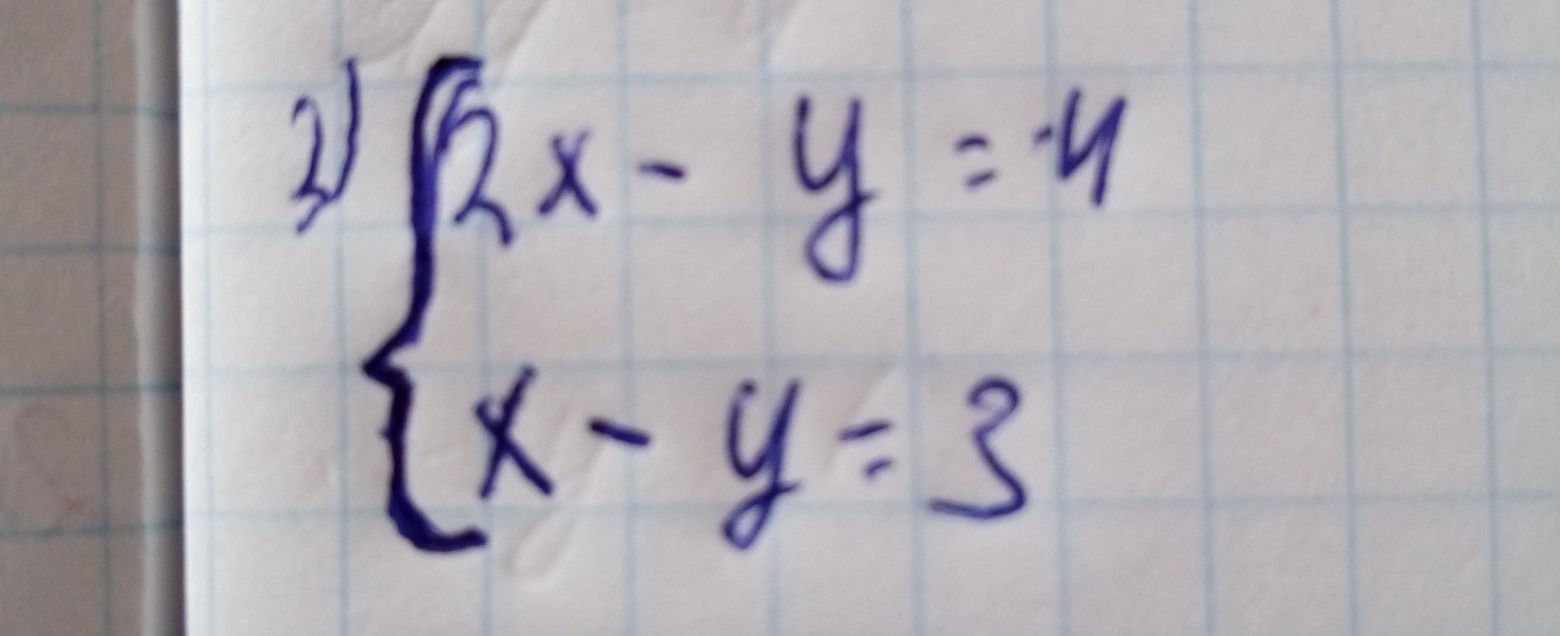 2) { 2x - y = -4
x - y = 3